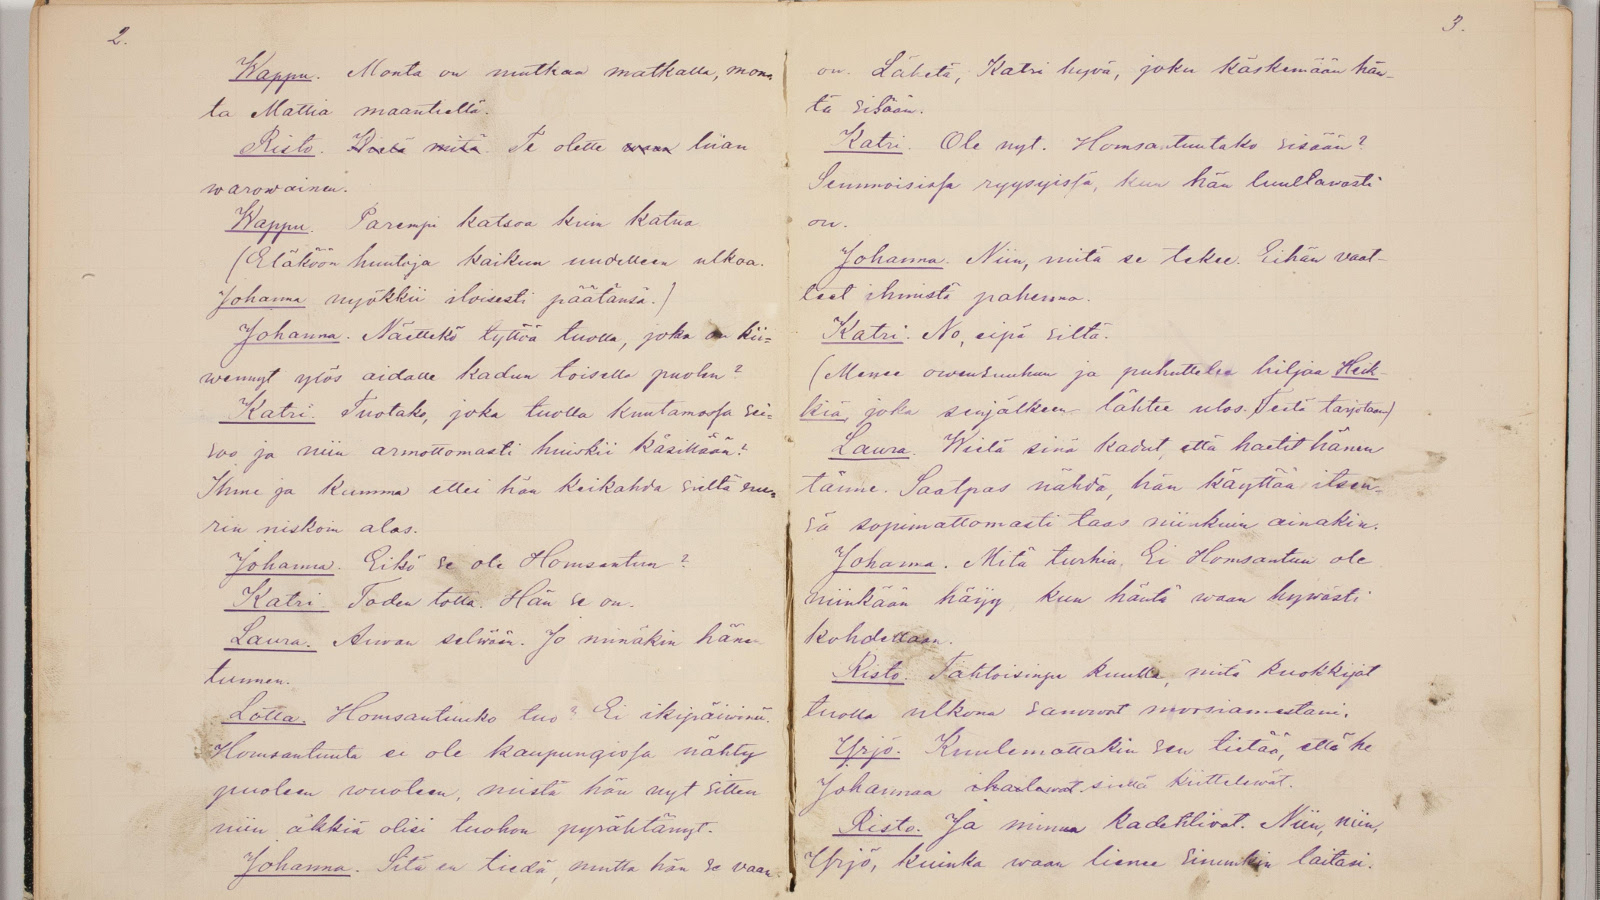 2.
Wappu. Monta on mutkaa matkalla, mon-
ta Mattia maantiellä.
Risto. Wielä mitä. Te olette liian
warowainen.
Wappu. Parempi katsoa kuin katua
(Eläköön huutoja kaikuu uudelleen ulkoa.
Johanna nyökkii iloisesti päätänsä.)
Johanna. Näettekö tyttöä tuolla, joka on kii-
wennyt ylös aidalle kadun toisella puolen?
Katri. Tuotako, joka tuolla kuutamossa sei-
soo ja niin armottomasti huiskii käsillään?
Ihme ja kumma ellei hän keikahda sieltä suu-
rin niskoin alas.
Johanna. Eikö se ole Homsantuu?
Katri. Toden totta. Hän se on.
Laura. Aiwan selwään. Jo minäkin hänen
tunnen.
Lotta. Homsantuuko tuo? Ei ikipäiwinä.
Homsantuuta ei ole kaupungissa nähty
puoleen wuoteen, mistä hän nyt sitten
niin äkkiä olisi tuohon pyrähtänyt.
Johanna. Sitä en tiedä, mutta hän se vaan
3.
on. Lähetä, Katri hyvä, joku käskemään hän-
tä sisään.
Katri. Ole nyt. Homsantuutako sisään?
Semmoisissa ryysyissä, kun hän luultavasti
on.
Johanna. Niin, mitä se tekee. Eihän vaat-
teet ihmistä pahenna.
Katri. No, eipä siltä.
(Menee owensuuhun ja puhuttelee hiljaa Heik-
kiä, joka senjälkeen lähtee ulos. Teitä tarjotaan)
Laura. Wielä sinä kadut, että haetit hänen
tänne. Saatpas nähdä, hän käyttää itsen-
sä sopimattomasti taas niinkuin ainakin.
Johanna. Mitä turhia. Ei Homsantuu ole
niinkään häijy kun häntä waan hywästi
kohdellaan.
Risto. Tahtoisinpa kuulla, mitä kuokkijat
tuolla ulkona sanowat morsiamestani.
Yrjö. Kuulemattakin sen tietää, että he
Johannaa ihailewat. siellä kiittelewät.
Risto. Ja minua kadehtivat. Niin, niin,
Yrjö, kuinka waan lienee sinunkin laitasi.